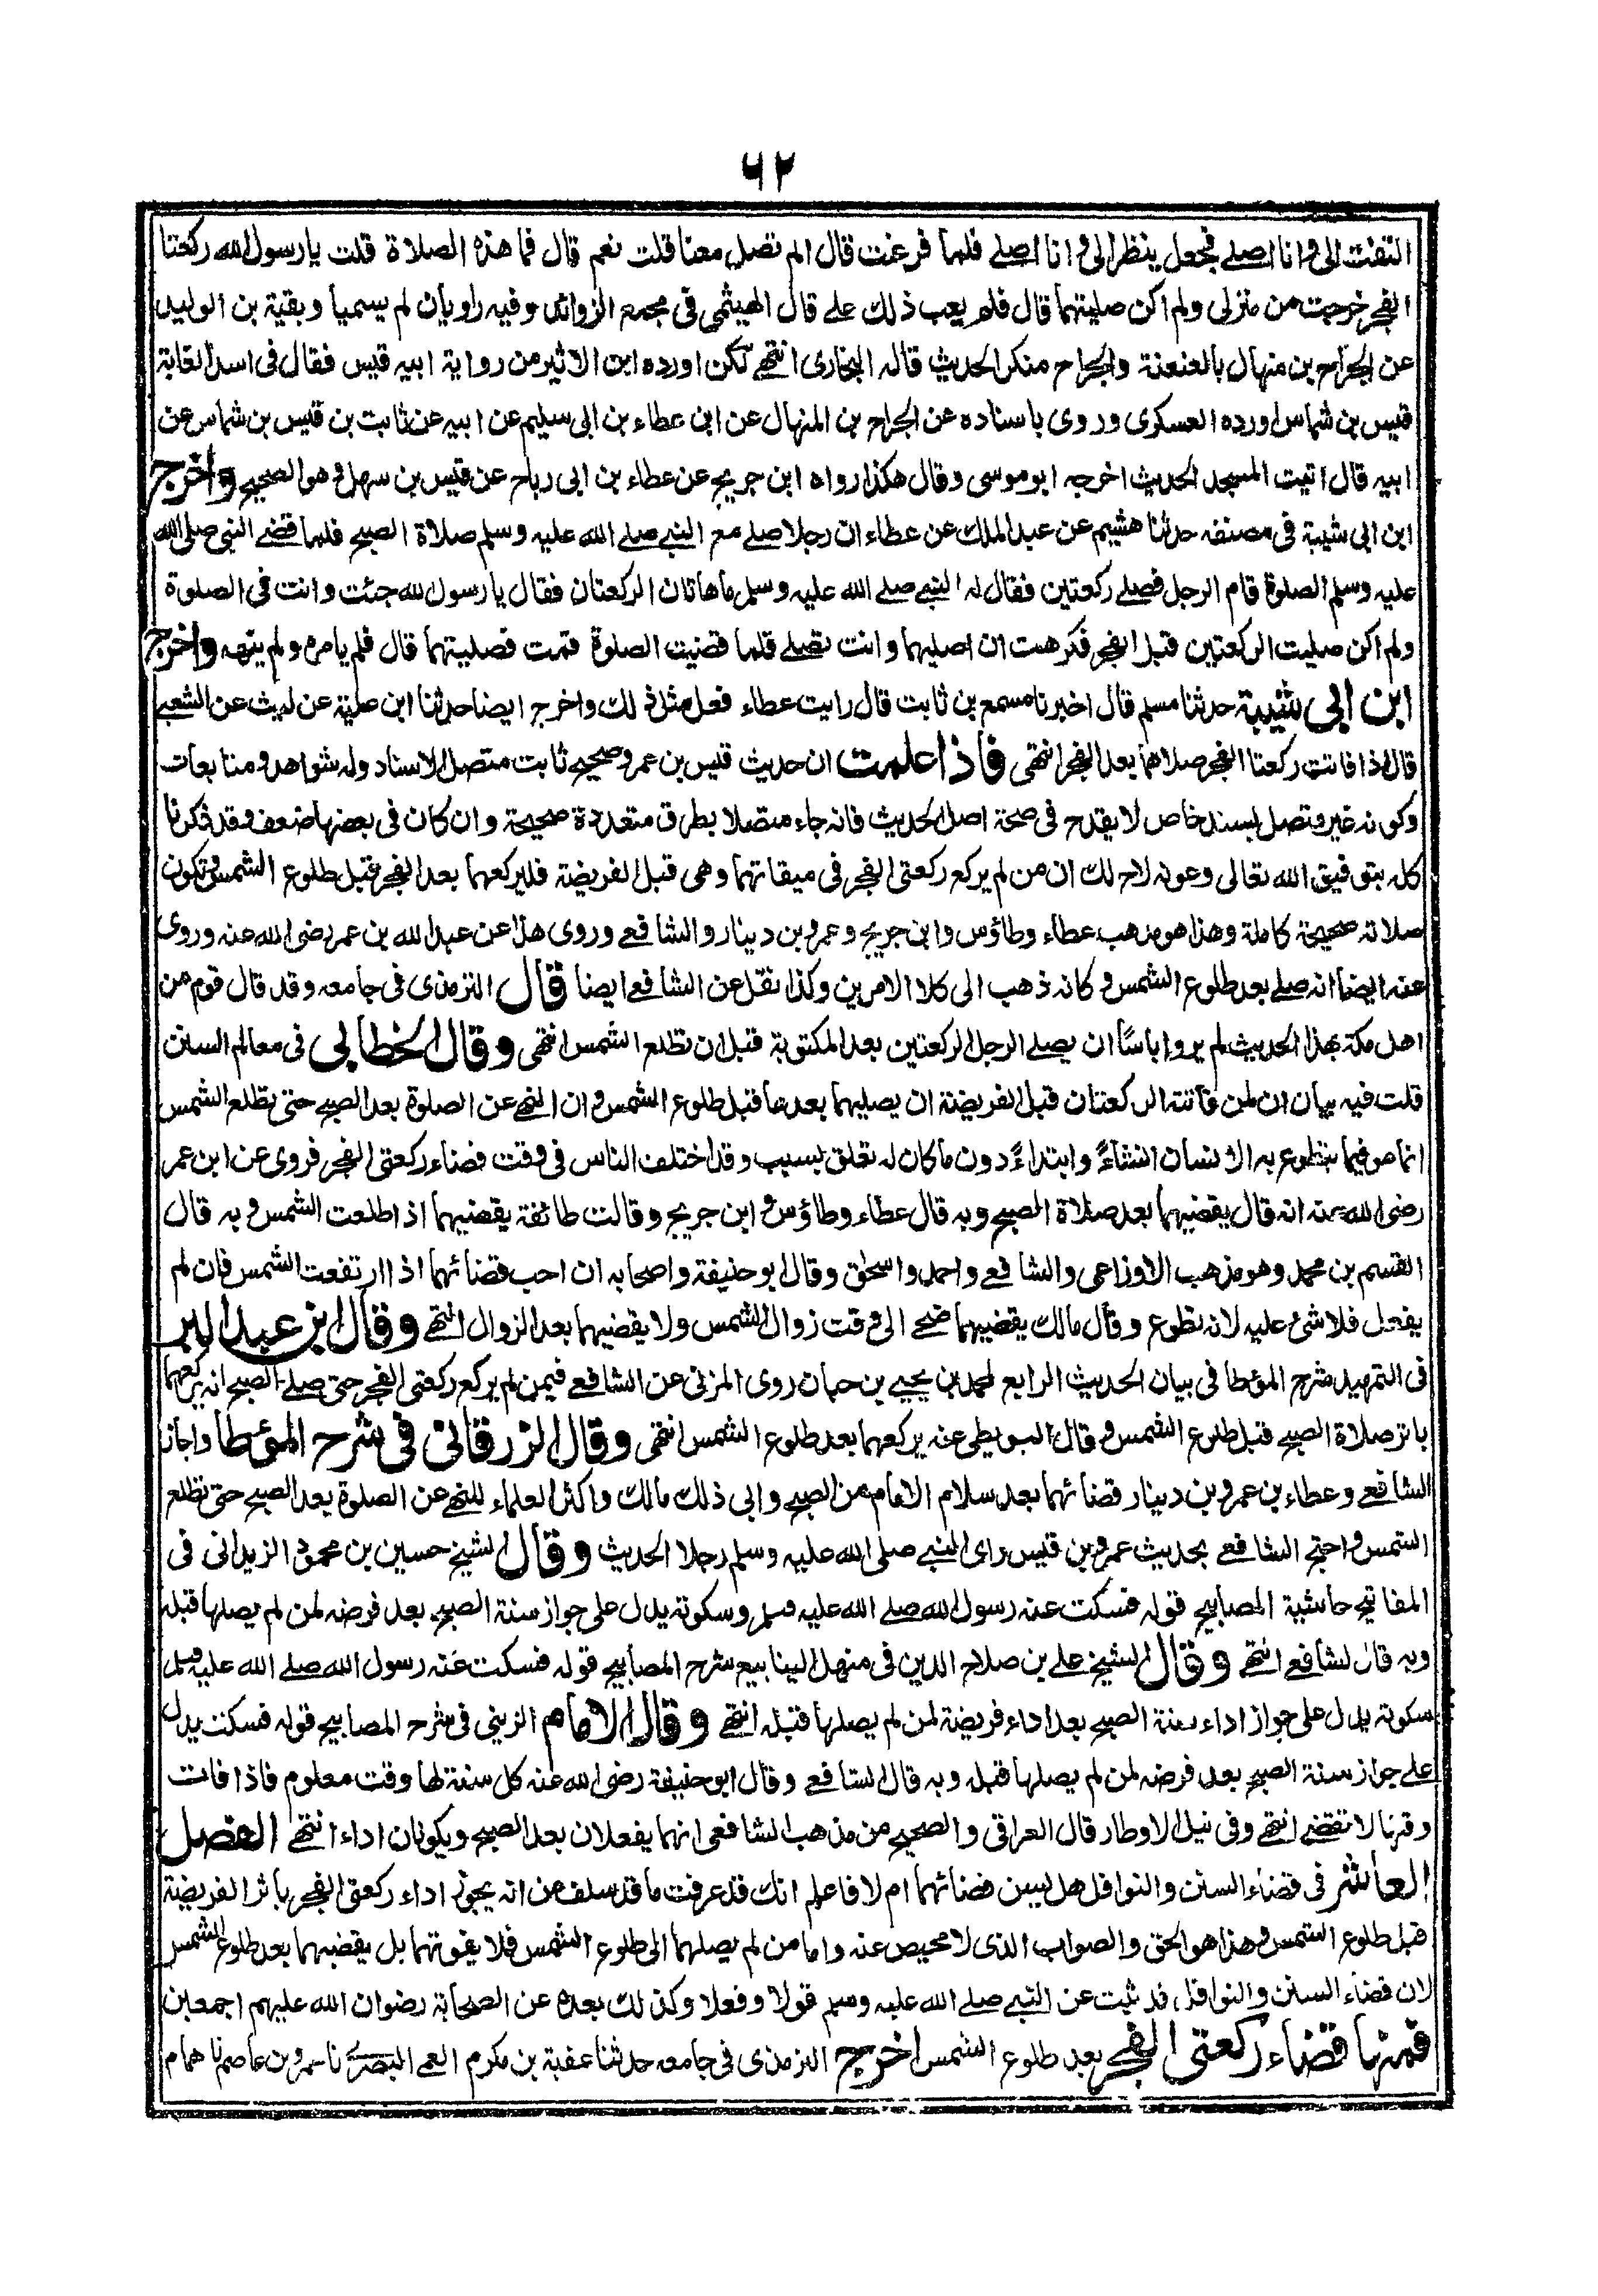 ٦٢
التفت الی وانا اصلے فجعل ینظر الی وانا اصلے فلما فرغت قال الم تصل معنا قلت نعم قال فما هذه الصلاة قلت یارسول الله رکعتا
الفجر خرجت من منزلی ولم اکن صلیتهما قال فلم یعب ذلك علے قال الهیثمی فی مجمع الزوائد وفیه راویان لم یسمیا وبقیة بن الولید
عن الجراح بن منهال بالعنعنة والجراح منکر الحدیث قاله البخاری انتهے لکن اورده ابن الاثیر من روایة ابیه قیس فقال فی اسد الغابة
قیس بن شماس اورده العسکری وروی باسناده عن الجراح بن المنهال عن ابن عطاء بن ابی سلیم عن ابیه عن ثابت بن قیس بن شماس عن
ابیه قال اتیت المسجد الحدیث اخرجه ابو موسی وقال هکذا رواه ابن جریج عن عطاء بن ابی رباح عن قیس بن سهل وهو الصحیح واخرج
ابن ابی شیبة فی مصنفه حدثنا هشیم عن عبد الملك عن عطاء ان رجلا صلے مع النبے صلے الله علیه وسلم صلاة الصبح فلما قضے النبی صلی الله
علیه وسلم الصلوة قام الرجل فصلے رکعتین فقال له النبے صلے الله علیه وسلم ما هاتان الرکعتان فقال یا رسول لله جئت وانت فی الصلوة
ولم اکن صلیت الرکعتین قبل الفجر فکرهت ان اصلیهما وانت تصلے فلما قضیت الصلوة قمت فصلیتهما قال فلم یامره ولم ینهه واخرج
ابن ابی شیبة حدثنا مسلم قال اخبرنا مسمع بن ثابت قال رایت عطاء فعل مثل ذلك واخرج ایضا حدثنا ابن علیة عن لیث عن الشعبے
قال اذا فاتت رکعتا الفجر صلاهما بعد الفجر انتهی فاذا علمت ان حدیث قیس بن عمرو صحیح ثابت متصل الاسناد وله شواهد ومتابعات
وکونه غیر متصل بسند خاص لا یقدح فی صحة اصل الحدیث فانه جاء متصلا بطرق متعددة صحیحة وان کان فی بعضها ضعف وقد ذکرنا
کله بتوفیق الله تعالی وعونه لاح لك ان من لم یرکع رکعتی الفجر فی میقاتهما وهی قبل الفریضة فلیرکعهما بعد الفجر قبل طلوع الشمس وتکون
صلاته صحیحة کاملة وهذا هو مذهب عطاء وطاؤس وابن جریج وعمرو بن دینار والشافعے وروی هذا عن عبد الله بن عمر رضی الله عنه وروی
عنه ایضا انه صلے بعد طلوع الشمس و کانه ذهب الی کلا الامرین وکذا نقل عن الشافعے ایضا قال الترمذی فی جامعه وقد قال قوم من
اهل مکة بهذا الحدیث لم یروا باسًا ان یصلے الرجل الرکعتین بعد المکتوبة قبل ان تطلع الشمس انتهی وقال الخطابی فی معالم السنن
قلت فیه بیان ان لمن فاتته الرکعتان قبل الفریضة ان یصلیهما بعدها قبل طلوع الشمس وان النهے عن الصلوة بعد الصبح حتی تطلع الشمس
انما هو فیما یتطوع به الانسان انشاءً وابتداءً دون ما کان له تعلق بسبب وقد اختلف الناس فی وقت قضاء رکعتی الفجر فروی عن ابن عمر
رضی الله عنه انه قال یقضیهما بعد صلاة الصبح وبه قال عطاء وطاؤس و ابن جریج وقالت طائفة یقضیهما اذا طلعت الشمس و به قال
القسم بن محمد وهو مذهب الاوزاعی والشافعے واحمد واسحٰق وقال ابو حنیفة واصحابه ان احب قضائهما اذا ارتفعت الشمس فان لم
یفعل فلا شیٔ علیه لانه تطوع وقال مالك یقضیهما ضحے الی وقت زوال الشمس ولا یقضیهما بعد الزوال انتهے وقال ابن عبد البر
فی التمهید شرح المؤطا فی بیان الحدیث الرابع لمحمد بن یحیے بن حبان روی المزنی عن الشافعے فیمن لم یرکع رکعتی الفجر حتی صلے الصبح انه یرکعهما
باثر صلاة الصبح قبل طلوع الشمس و قال البویطی عنه یرکعهما بعد طلوع الشمس انتهی وقال الزرقانی فی شرح المؤطا واجاز
الشافعے وعطاء بن عمرو بن دینار قضائهما بعد سلام الامام من الصبح وابی ذلك مالك واکثر العلماء للنهے عن الصلوة بعد الصبح حتی تطلع
الشمس واحتج الشافعے بحدیث عمرو بن قیس رای النبے صلی الله علیه وسلم رجلا الحدیث وقال الشیخ حسین بن محمود الزیدانی فی
المفاتیح حاشیة المصابیح قوله فسکت عنه رسول الله صلے الله علیه وسلم وسکوته یدل علی جواز سنة الصبح بعد فرضه لمن لم یصلها قبله
وبه قال الشافعے انتهے وقال الشیخ علے بن صلاح الدین فی منهل الینابیع شرح المصابیح قوله فسکت عنه رسول الله صلے الله علیه وسلم
سکوته یدل علی جواز اداء سنة الصبح بعد اداء فریضة لمن لم یصلها قبله انتهے وقال الامام الزینی فی شرح المصابیح قوله فسکت یدل
علے جواز سنة الصبح بعد فرضه لمن لم یصلها قبله وبه قال الشافعے وقال ابو حنیفة رضی الله عنه کل سنة لها وقت معلوم فاذا فات
وقتها لا تقضے انتهے وفی نیل الاوطار قال العراقی والصحیح من مذهب الشافعی انهما یفعلان بعد الصبح ویکونان اداء انتهے الفصل
العاشر فی قضاء السنن والنوافل هل یسن قضائهما ام لا فاعلم انك قد عرفت ما قد سلف من انه یجوز اداء رکعتی الفجر باثر الفریضة
قبل طلوع الشمس و هذا هو الحق والصواب الذی لا محیص عنه واما من لم یصلهما الی طلوع الشمس فلا یفوتهما بل یقضیهما بعد طلوع الشمس
لان قضاء السنن والنوافل قد ثبت عن النبے صلے الله علیه وسلم قولا وفعلا وکذلك بعده عن الصحابة رضوان الله علیهم اجمعین
فمنها قضاء رکعتی الفجر بعد طلوع الشمس اخرج الترمذی فی جامعه حدثنا عقبة بن مکرم العمے البصری نا عمرو بن عاصم نا همام